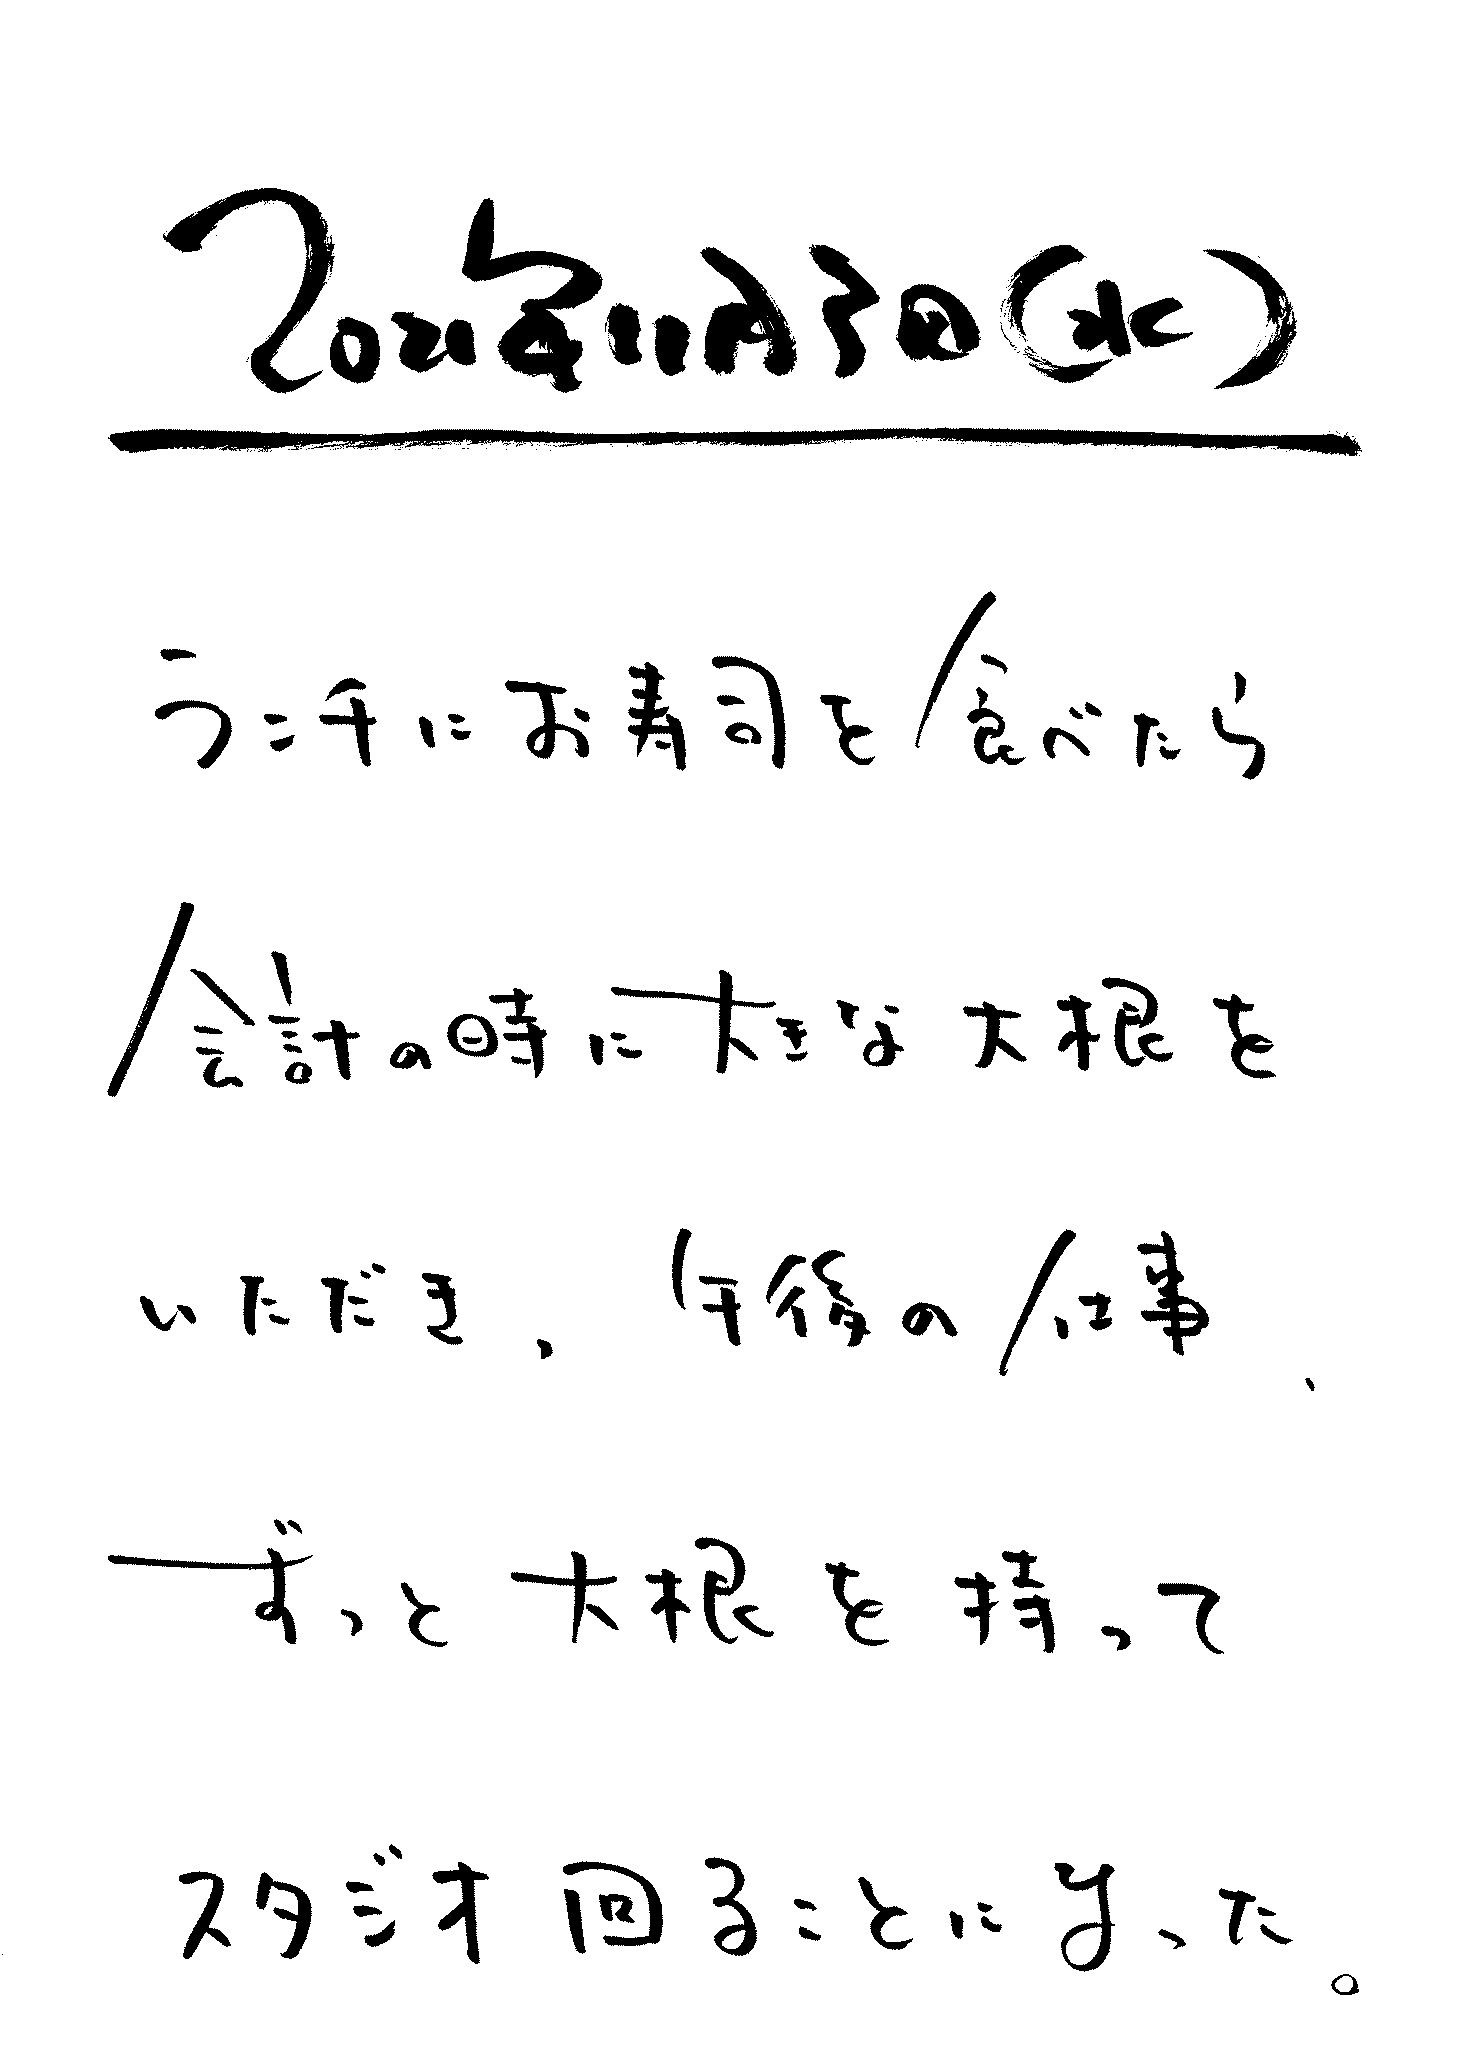 2021年11月3日(水)
ランチにお寿司を食べたら
会計の時に大きな大根を
いただき、午後の仕事、
ずっと大根を持って
スタジオ回ることになった。